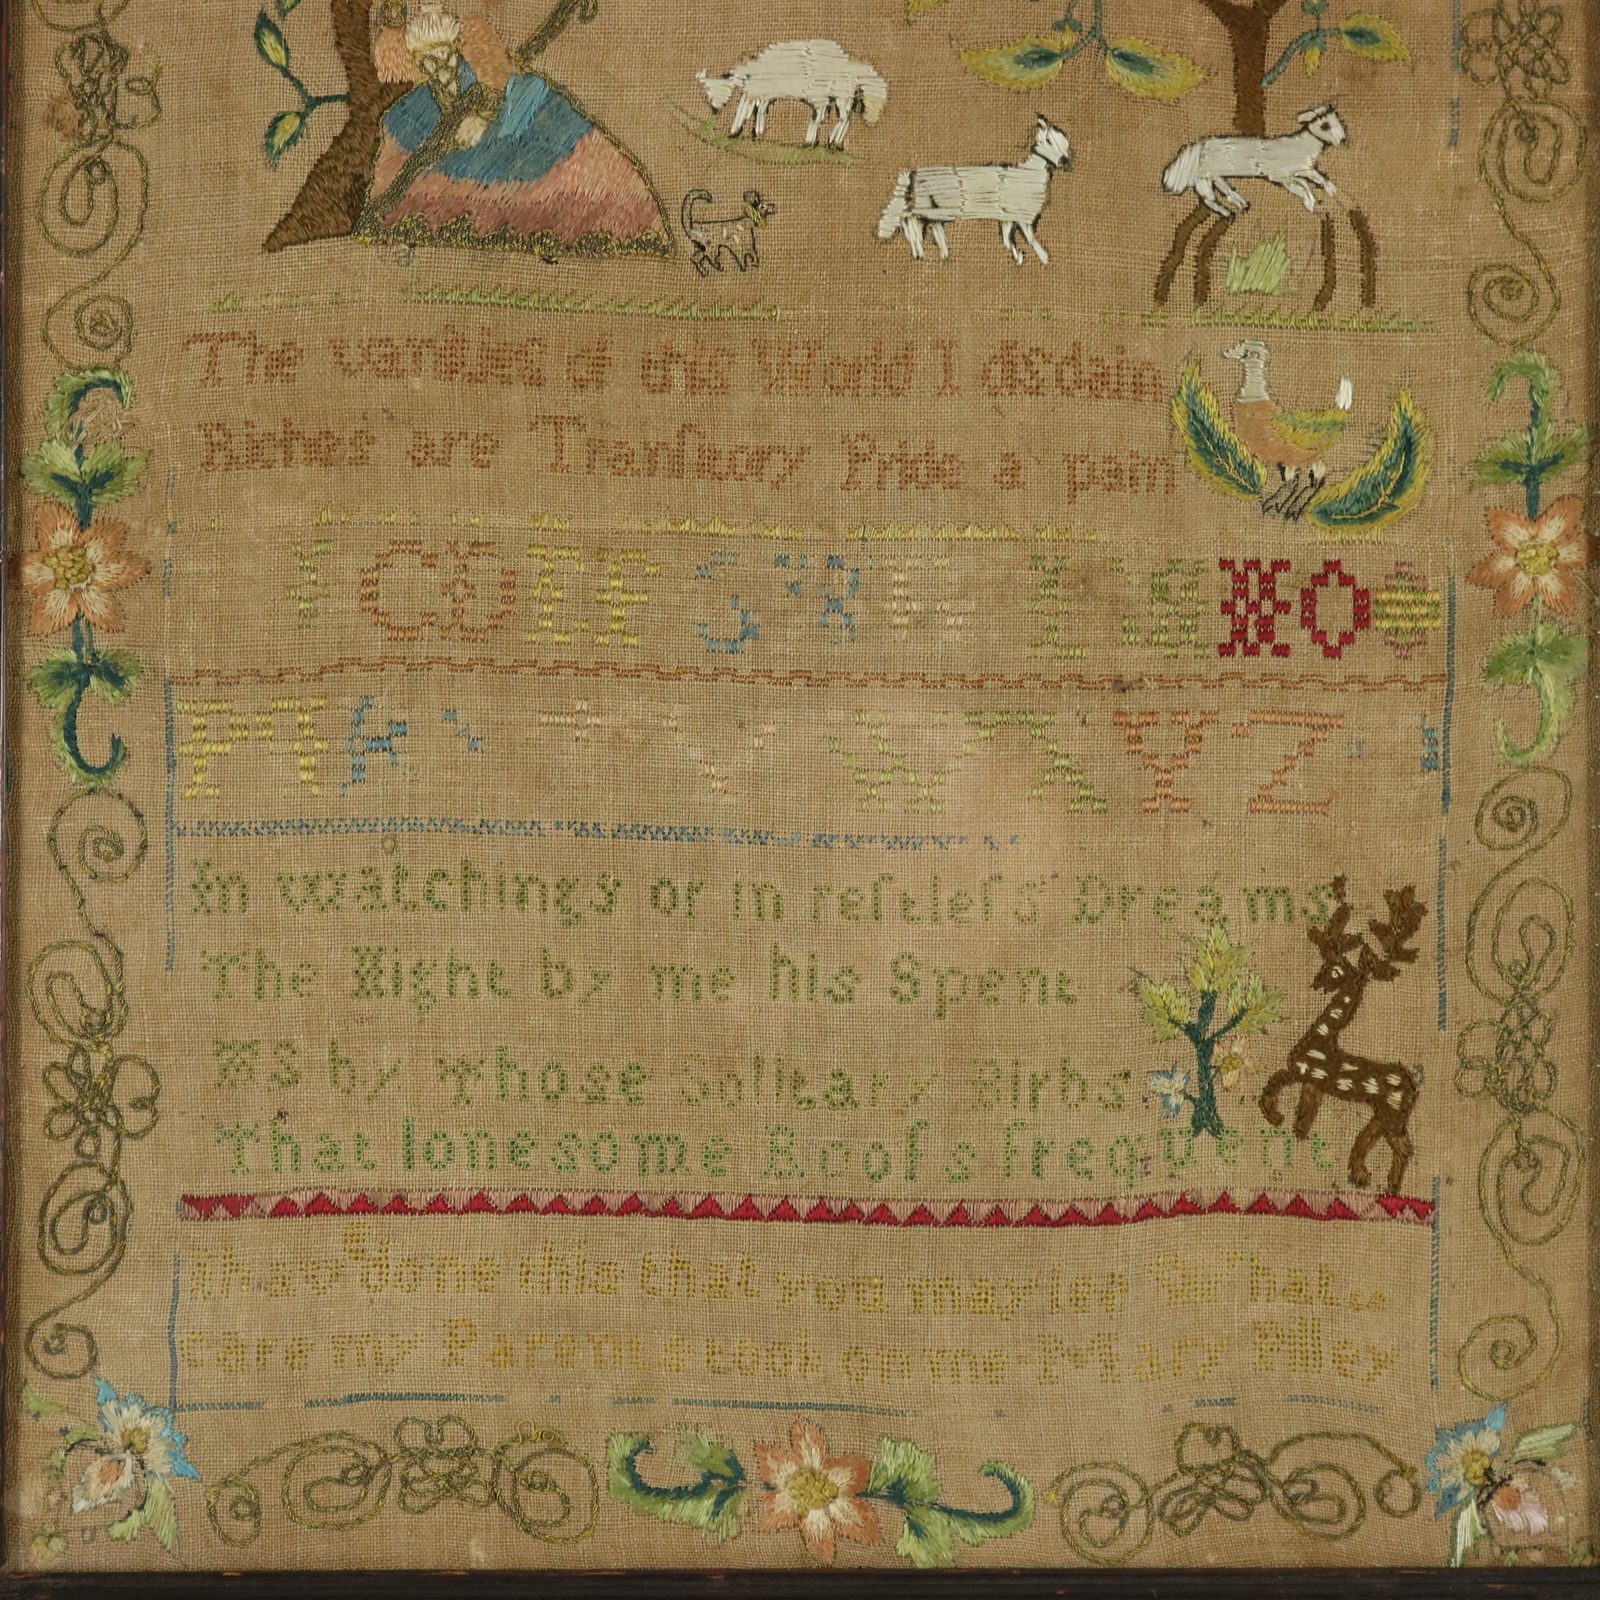 The vanities of this World I disdain
Riches are Tranſitory Pride a pain
C D E F G K L M N O
P Q R V W X Y Z
In watchings or in reſtleſs Dreams
The Night by me his Spent
As by Those Solitary Birds
That lonesome Roofs frequent
I have done this that you may ſee What
care my Parents took on me Mary Pilley